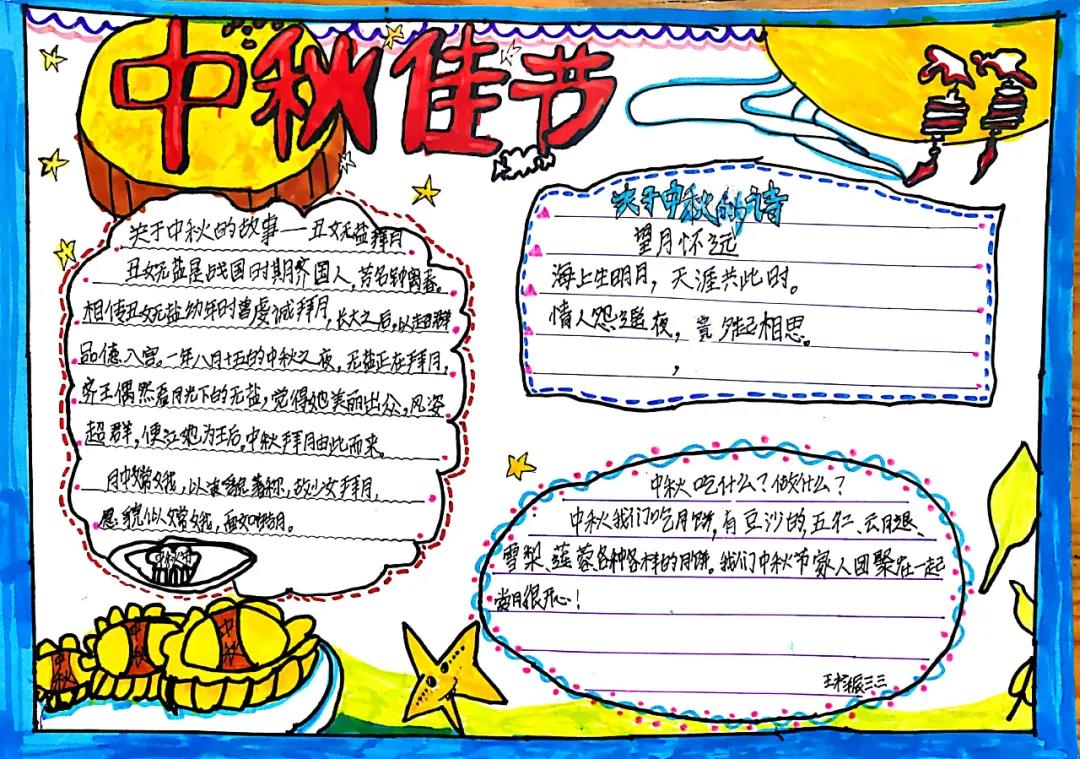 中秋佳节
关于中秋的故事——丑女无盐拜月
丑女无盐是战国时期齐国人，芳名钟离春。
相传丑女无盐幼年时曾虔诚拜月，长大之后，以超群
品德入宫。一年八月十五的中秋之夜，无盐正在拜月，
齐王偶然看月光下的无盐，觉得她美丽出众，风姿
超群，便立她为王后。中秋拜月由此而来。
月中嫦娥，以美貌著称，故少女拜月，
愿貌似嫦娥，面如皓月。
中秋节
中秋
中秋
中秋
关于中秋的诗
望月怀远
海上生明月，天涯共此时。
情人怨遥夜，竟夕起相思。
中秋吃什么？做什么？
中秋我们吃月饼，有豆沙的，五仁、云腿、
雪梨、莲蓉各种各样的月饼。我们中秋节家人团聚在一起
赏月很开心！